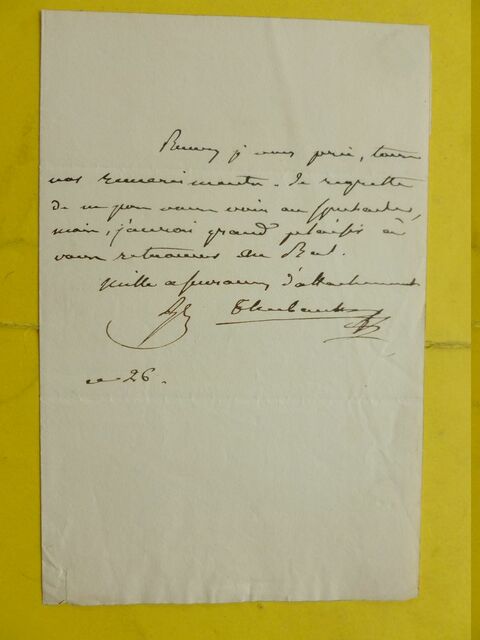 Recevez je vous prie, tous
nos remerciments. Je regrette
de ne pas vous voir au spectacle,
mais, j'aurai grand plaisir à
vous retrouver au Bal.
Mille assurances d'attachement
ce 26.